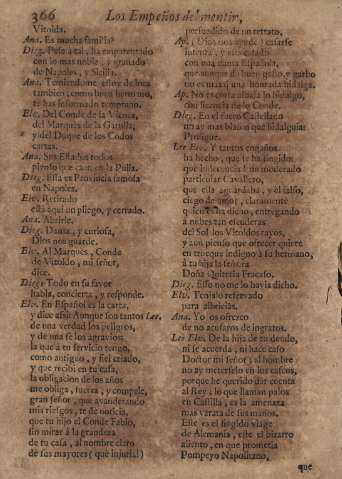 366 Los Empeños del mentir,
Vitolda.
Ana. Es mucha familia?
Dieg. Pese a tal, ha emparentado
con lo mas noble, y granado
de Napoles, y Sicilia.
Ana. Teniendome esfer de luca
tambien, como buen hermano,
te has informado temprano.
Elv. Del Conde de la
del Marques de la Garulla;
y del Duque de los Codos
cartas.
Ana. Sus Estados todos
pienso que caen en la Pulla.
Dieg. Essa es Provincia famosa
en Napoles.
Elv. Retirado
està aqui un pliego, y cerrado.
Ana. Abrirle.
Dieg. Dama, y curiosa,
Dios nos guarde.
Elv. Al Marques, Conde
de Vitoldo, mi señor,
dice.
Dieg. Todo en su favor
habla, concierta, y responde.
Elv. En Español es la carta,
y dice assi: Aunque son tantos Lee.
de una verdad los peligros,
y de una se los agravios,
la que à tu servicio tengo,
como antiguo, y fiel criado,
y que recibì en tu casa,
la obligacion de los años
me obliga, fuerza, y compele,
gran señor, que aventurando
mis riesgos, te dè noticia,
que tu hijo el Conde Fabio,
sin mirar à la grandeza
de tu casa, al nombre claro
de sus mayores (què injuria!)
persuadido de un retrato,
Ap. (Dios nos ayude) casarse
intenta, y està casado
con una dama Española,
que aunque de buen gusto, y garbo
no es mas, que una honrada hidalga.
Ap. No es cosa de risa lo hidalgo,
con licencia de lo Conde.
Dieg. En el fuero Castellano
no ay mas blason que hidalguia:
Prosigue.
Lee Elv. Y tantos engaños
ha hecho, que se ha fingido
que indecentia! un moderado
particular Cavallero,
que està aguardaba, y èl falso,
ciego de amor, claramente
quien està dicho, entregando
à nebes tan escuderas
del Sol los Vitoldos rayos,
y aun pienso que ofrecer quiere
en trueque indigno à su hermano,
à tu hija la señora
Doña Quiteria Fracaso.
Dieg. Esso no me lo havia dicho.
Elv. Tenialo refervado
para albricias.
Ana. Yo os ofrezco
de no acusaros de ingratos.
Lee Elv. De la hija de tu deudo,
ni se acuerda, ni hace caso
Doctor mi señor; al hombre
no ay meterselo en los cascos,
porque he querido dar cuenta
al Rey, lo que llaman palos
en Castilla, es la amenaza
mas varata de sus manos.
Este es el fingido viage
de Alemania, este el bizarro
aliento, en que prometia
Pompeyo Napolitano,
que